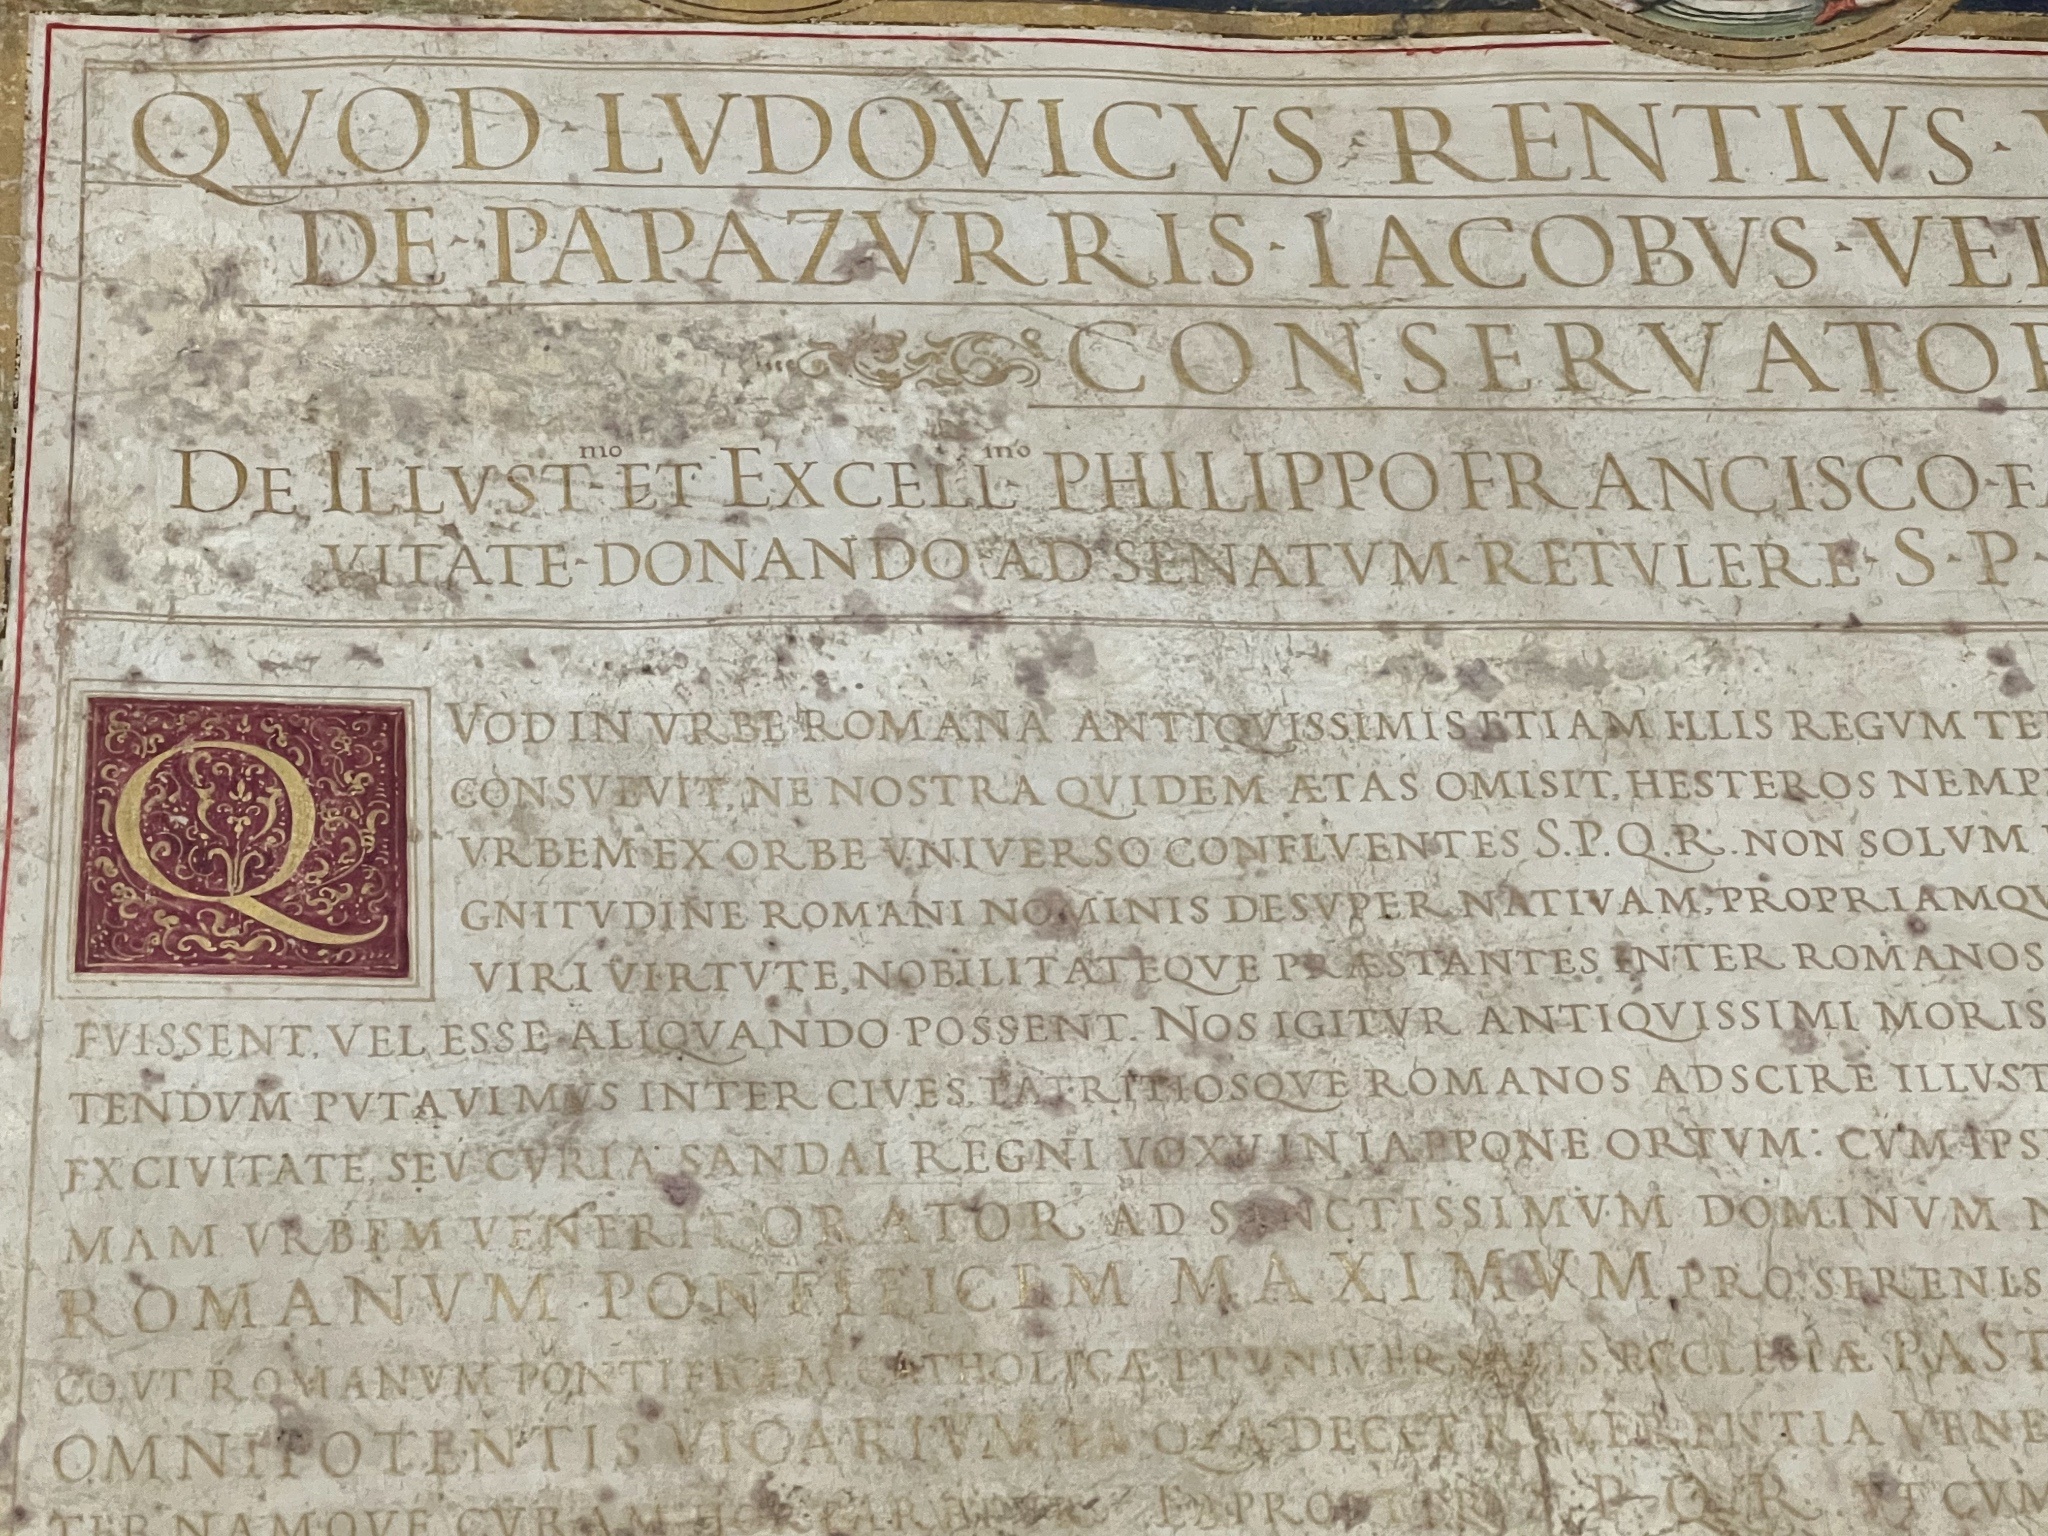 QVOD LVDOVICVS RENTIVS ·
DE · PAPAZVRRIS · IACOBVS · VEL
CONSERVATOR
DE ILLVST·mo ET EXCELL·mo PHILIPPO FRANCISCO · FA
VITATE · DONANDO AD SENATVM · RETVLERE · S · P ·
QVOD IN VRBE ROMANA ANTIQVISSIMIS ETIAM ILLIS REGVM TE
CONSVEVIT, NE NOSTRA QVIDEM ÆTAS OMISIT, HESTEROS NEMP
VRBEM EX ORBE VNIVERSO CONFLVENTES S.P.Q.R. NON SOLVM
GNITVDINE ROMANI NOMINIS DESVPER NATIVAM, PROPRIAMQV
VIRI VIRTVTE, NOBILITATEQVE PRÆSTANTES INTER ROMANOS
FVISSENT, VEL ESSE ALIQVANDO POSSENT. NOS IGITVR ANTIQVISSIMI MORIS
TENDVM PVTAVIMVS INTER CIVES, PATRITIOSQVE ROMANOS ADSCIRE ILLVST
EX CIVITATE, SEV CVRIA SANDAI REGNI VOXV IN IAPPONE ORTVM: CVM IPS
MAM VRBEM VENERIT ORATOR AD SANCTISSIMVM DOMINVM N
ROMANVM PONTIFICEM MAXIMVM PRO SERENIS
COVT ROMANVM PONTIFICEM CATHOLICÆ ET VNIVERSALIS ECCLESIÆ PAST
OMNIPOTENTIS VICARIVM EA QVA DECET REVERENTIA VENE
TERNAMQVE CVRAM P. Q. R. VT CVM